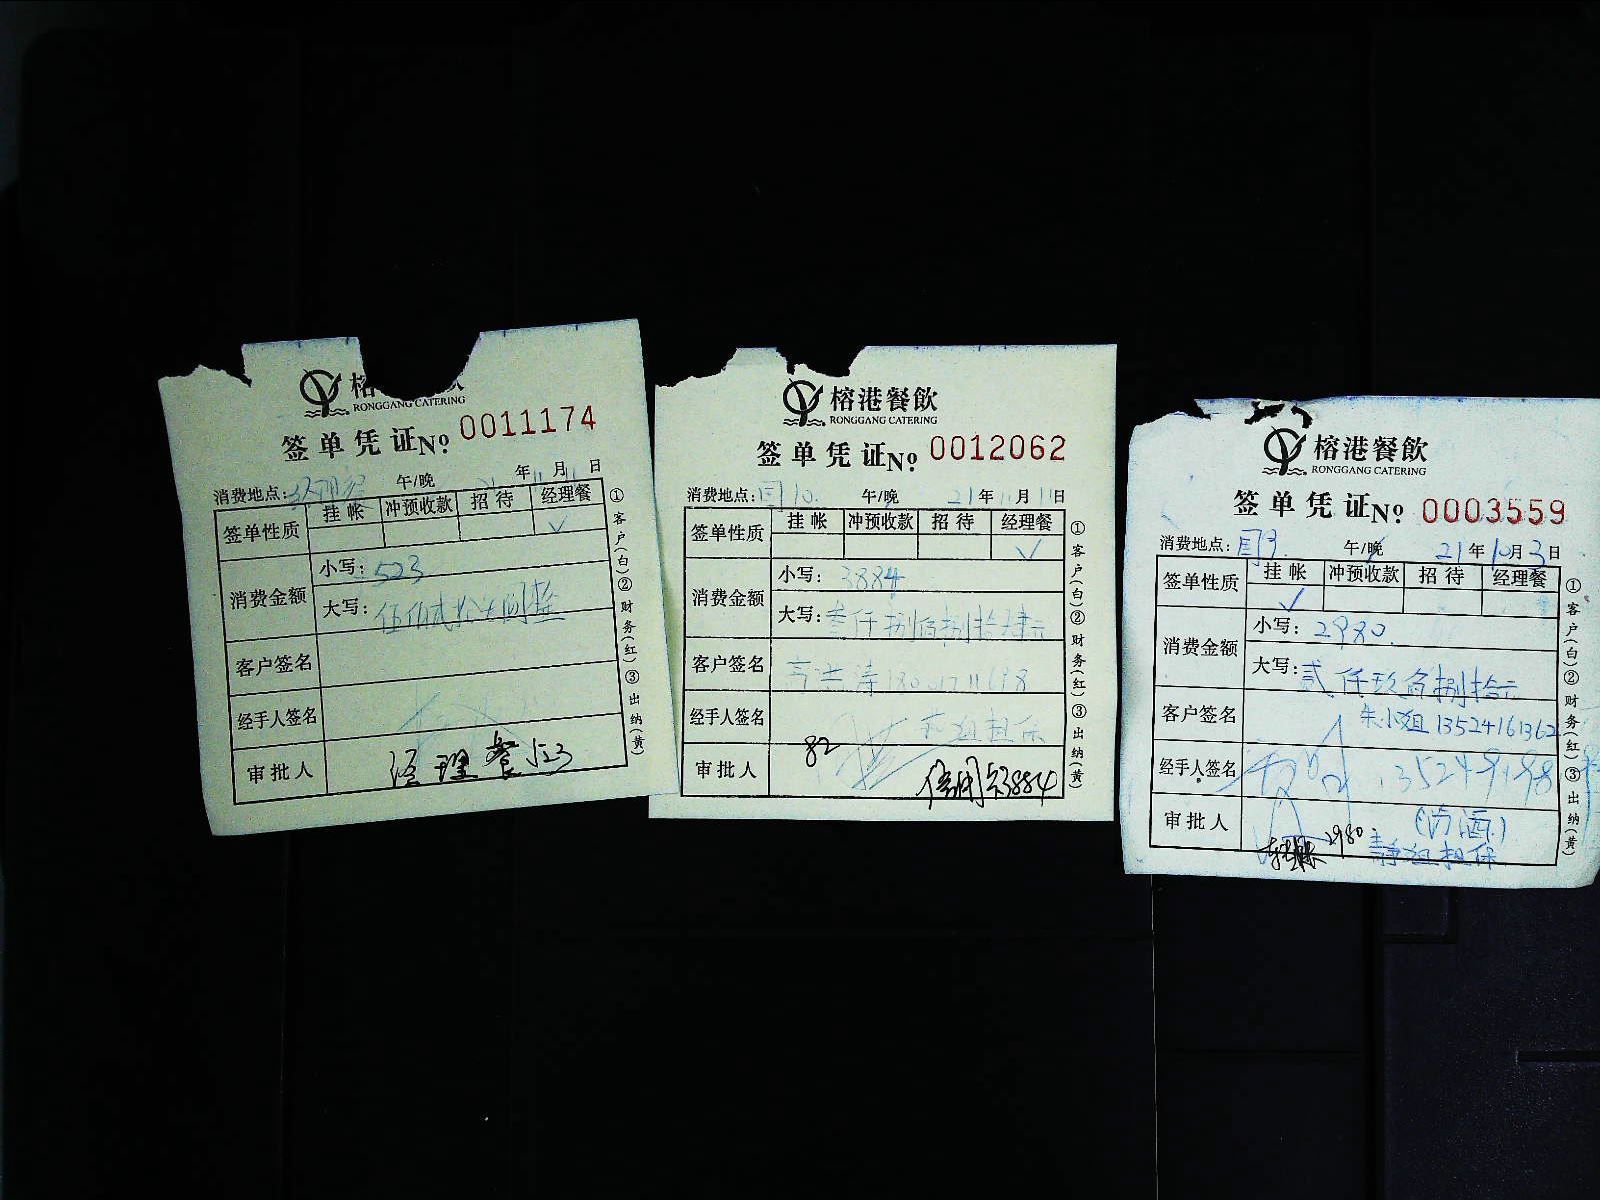 RONGGANG CATERING
签单凭证 No. 0011174
消费地点: 午/晚 年 11月11日
签单性质 挂帐 冲预收款 招待 经理餐
✓
消费金额 小写: 523
大写: 伍佰贰拾
客户签名
经手人签名
审批人 经理餐 523
①客户(白)②财务(红)③出纳(黄)
榕港餐飲
RONGGANG CATERING
签单凭证 No. 0012062
消费地点: 午/晚 21年11月11日
签单性质 挂帐 冲预收款 招待 经理餐
✓
消费金额 小写: 3884
大写: 叁仟捌佰捌拾肆元
客户签名
经手人签名
审批人 82 信用 3884
①客户(白)②财务(红)③出纳(黄)
榕港餐飲
RONGGANG CATERING
签单凭证 No. 0003559
消费地点: 午/晚 21年10月3日
签单性质 挂帐 冲预收款 招待 经理餐
✓
消费金额 小写: 2980.
大写: 贰仟玖佰捌拾元
客户签名 朱小姐 13524161362
经手人签名
审批人 2980 静姐担保
①客户(白)②财务(红)③出纳(黄)